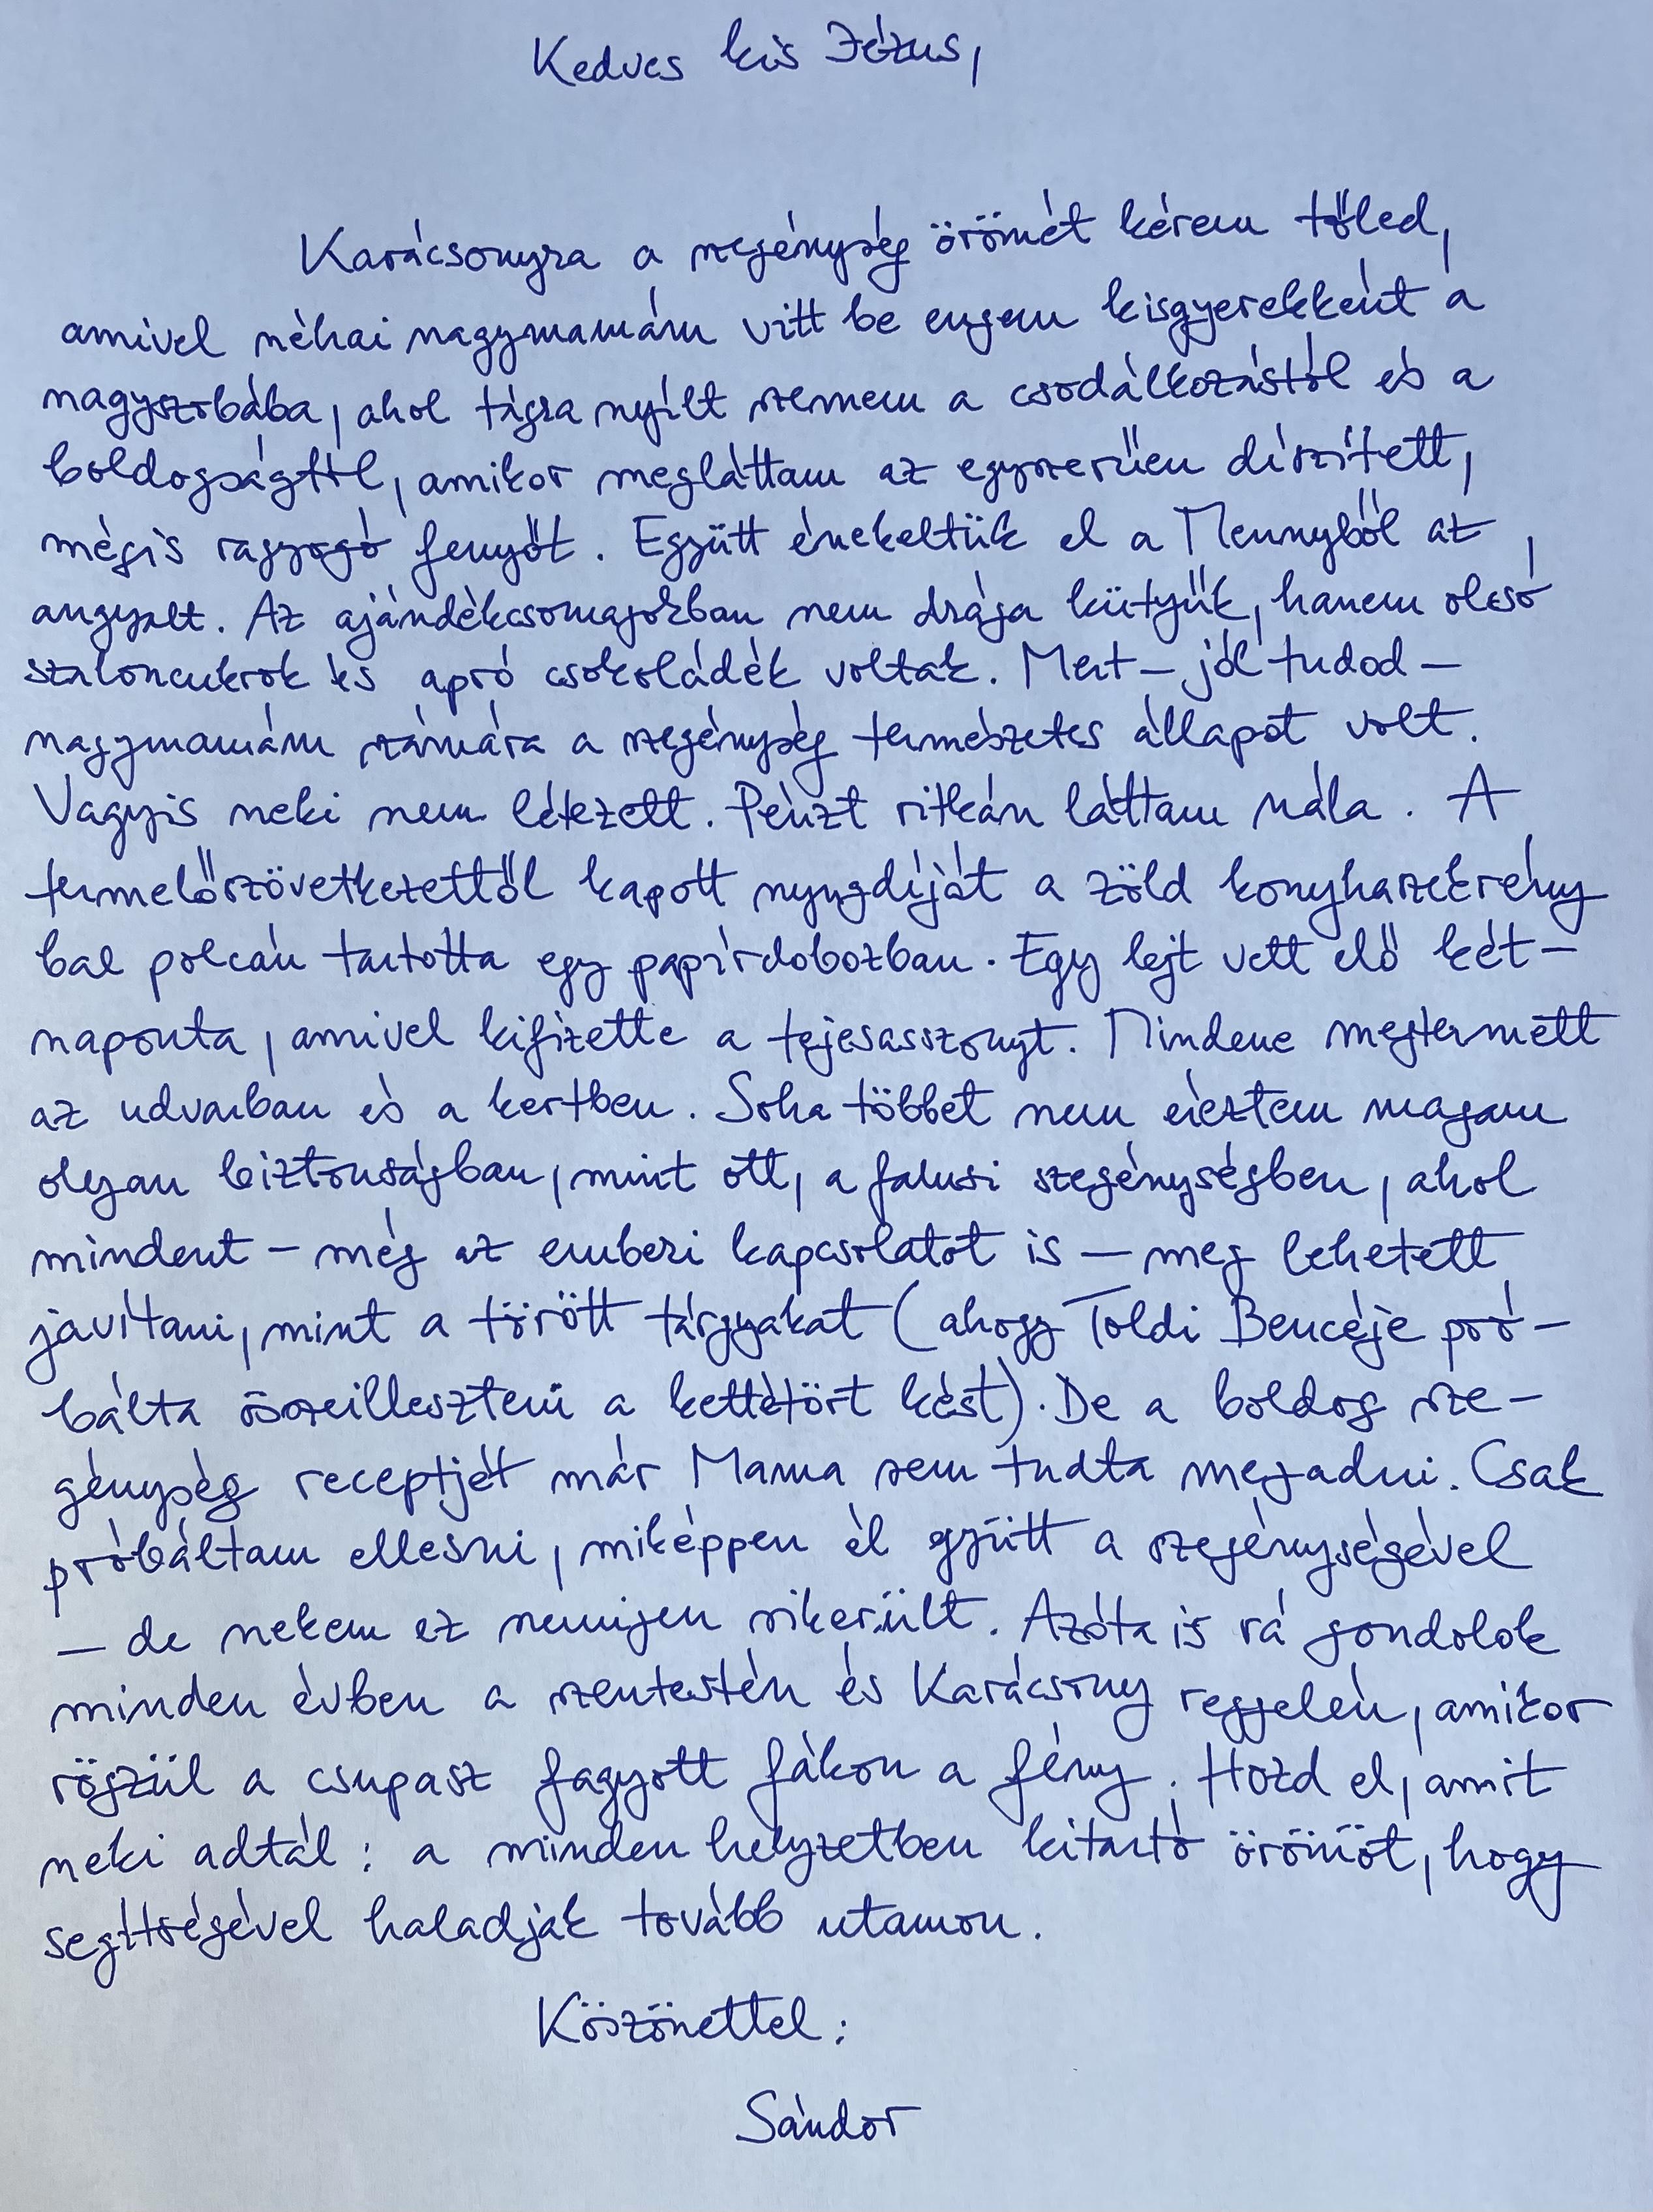 Kedves kis Jézus,
Karácsonyra a szegénység örömét kérem tőled,
amivel néhai nagymamám vitt be engem kisgyerekként a
nagyszobába, ahol tágra nyílt szemem a csodálkozástól és a
boldogságtól, amikor megláttam az egyszerűen díszített,
mégis ragyogó fenyőt. Együtt énekeltük el a Mennyből az
angyalt. Az ajándékcsomagokban nem drága kütyük, hanem olcsó
szaloncukrok és apró csokoládék voltak. Mert – jól tudod –
nagymamám számára a szegénység természetes állapot volt.
Vagyis neki nem létezett. Pénzt ritkán láttam nála. A
termelőszövetkezettől kapott nyugdíját a zöld konyhaszekrény
bal polcán tartotta egy papírdobozban. Egy lejt vett elő két-
naponta, amivel kifizette a tejesasszonyt. Mindene megtermett
az udvarban és a kertben. Soha többet nem éreztem magam
olyan biztonságban, mint ott, a falusi szegénységben, ahol
mindent – még az emberi kapcsolatot is – meg lehetett
javítani, mint a törött tárgyakat (ahogy Toldi Bencéje pró-
bálta összeilleszteni a kettétört kést). De a boldog sze-
génység receptjét már Mama sem tudta megadni. Csak
próbáltam ellesni, miképpen él együtt a szegénységével
– de nekem ez nemigen sikerült. Azóta is rá gondolok
minden évben a szentestén és Karácsony reggelén, amikor
rögzül a csupasz fagyott fákon a fény. Hozd el, amit
neki adtál: a minden helyzetben kitartó örömöt, hogy
segítségével haladjak tovább utamon.
Köszönettel:
Sándor